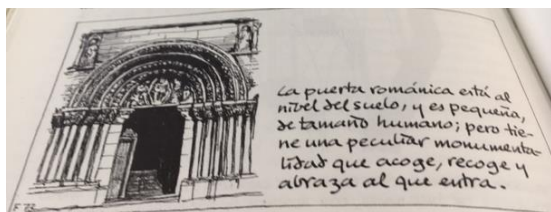 La puerta románica está al
nivel del suelo, y es pequeña,
de tamaño humano; pero tie-
ne una peculiar monumenta-
lidad que acoge, recoge y
abraza al que entra.